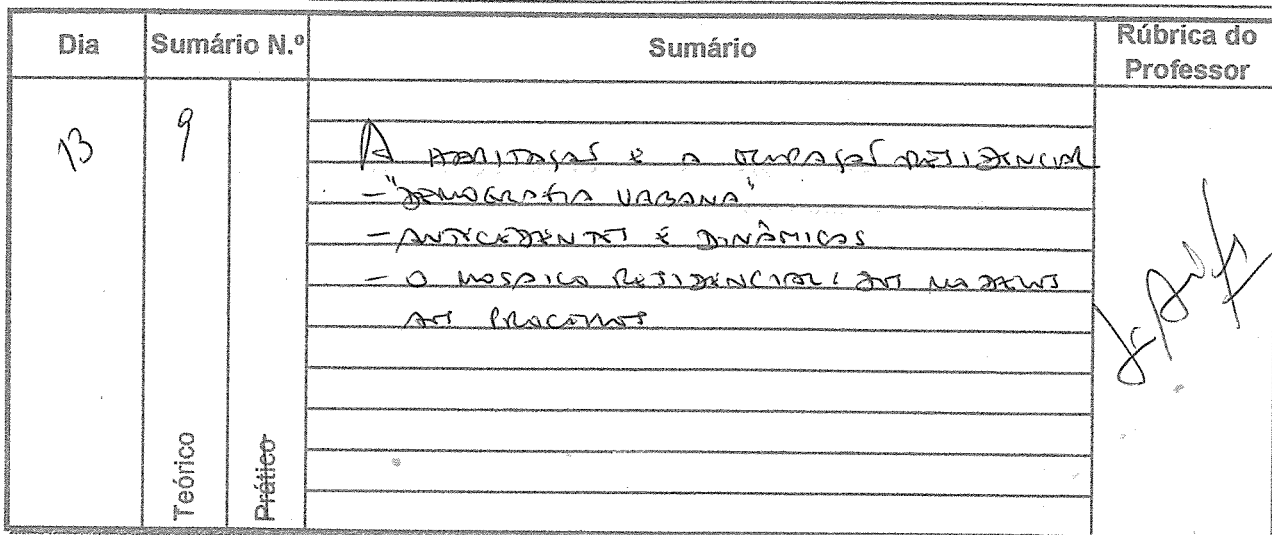 Dia Sumário N.º Sumário Rúbrica do Professor
13 9
A HABITAÇÃO E A OCUPAÇÃO RESIDENCIAL
- "DEMOGRAFIA URBANA"
- ANTECEDENTES E DINÂMICAS
- O MOSAICO RESIDENCIAL: DOS MODELOS
AOS PROCESSOS
Teórico Prático